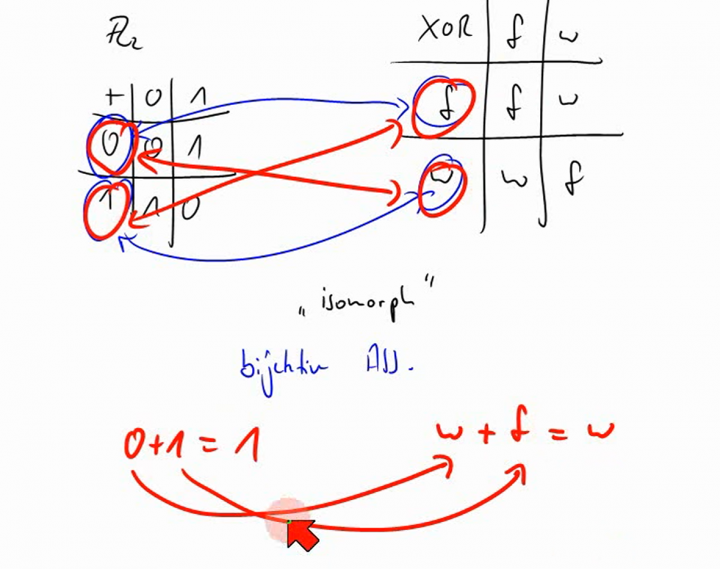 ℤ₂
+ 0 1
0 0 1
1 1 0
XOR f w
f f w
w w f
„isomorph"
bijektiv Abb.
0+1=1
w+f=w